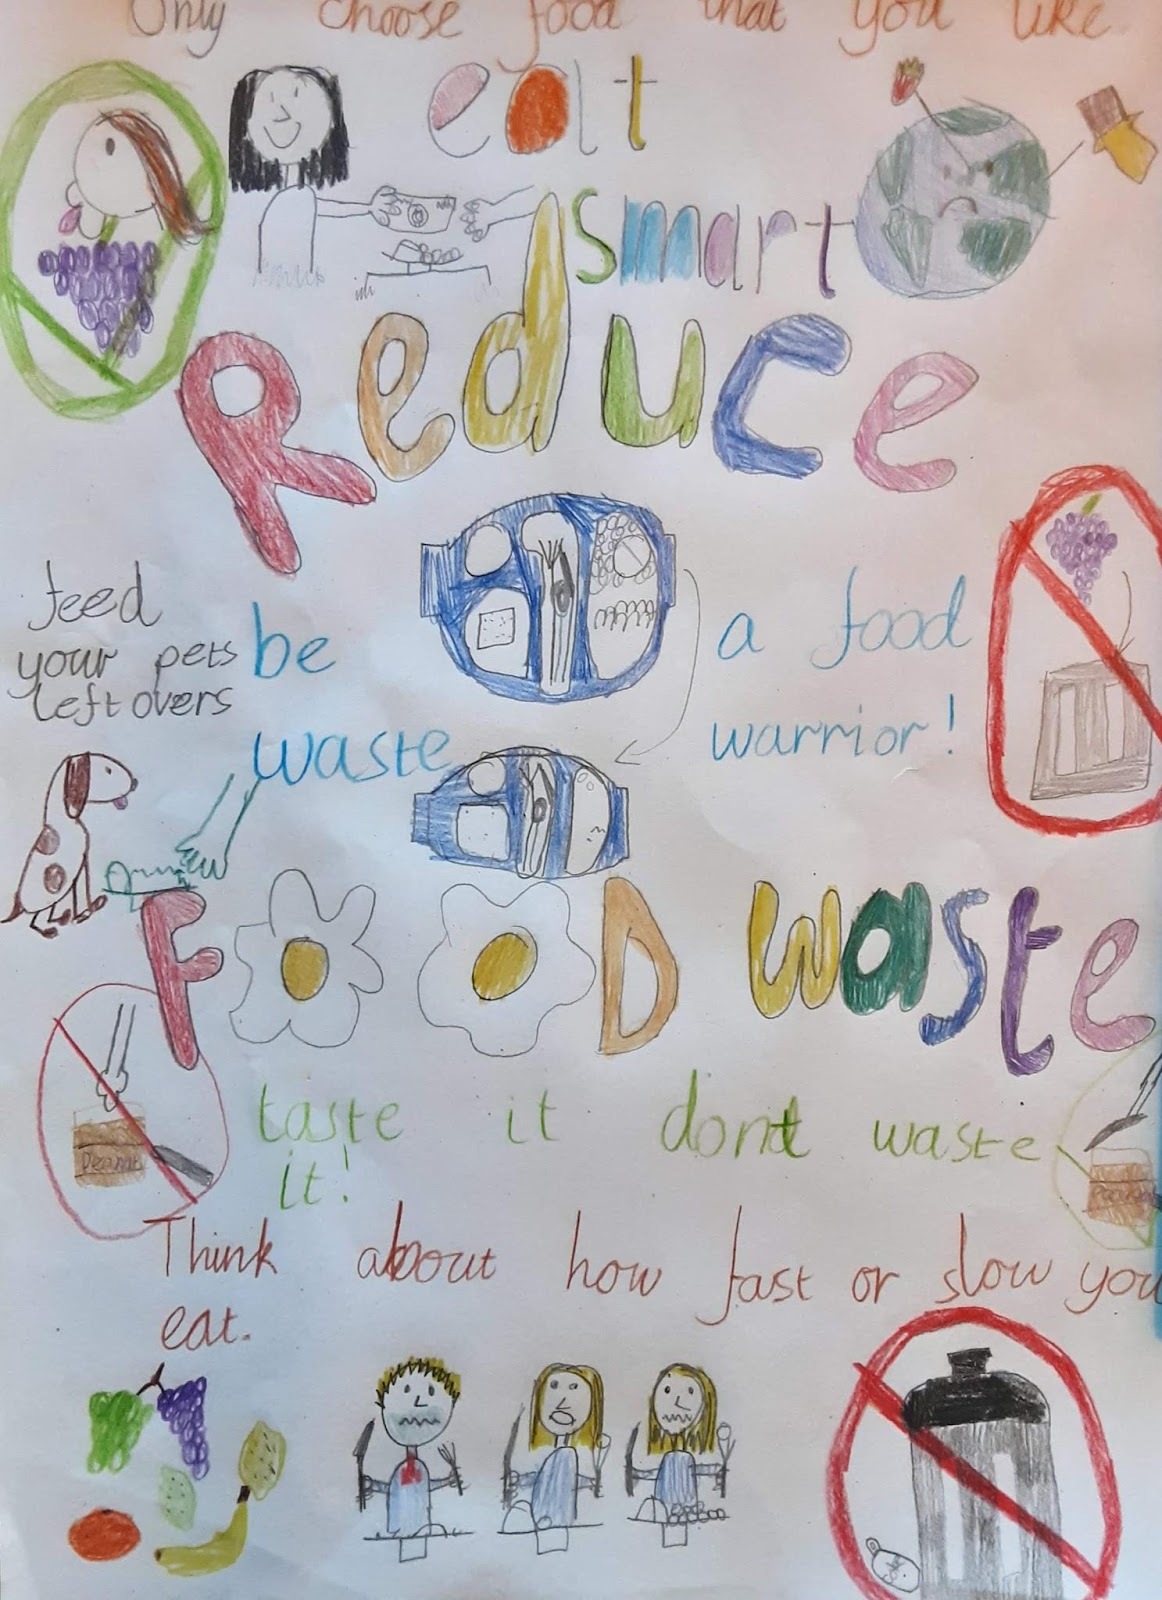 Only choose food that you like.
eat
smart
Reduce
feed
your pets
leftovers
be a food
waste warrior!
FOOD waste
Peanut
taste it dont waste
it!
Think about how fast or slow you
eat.